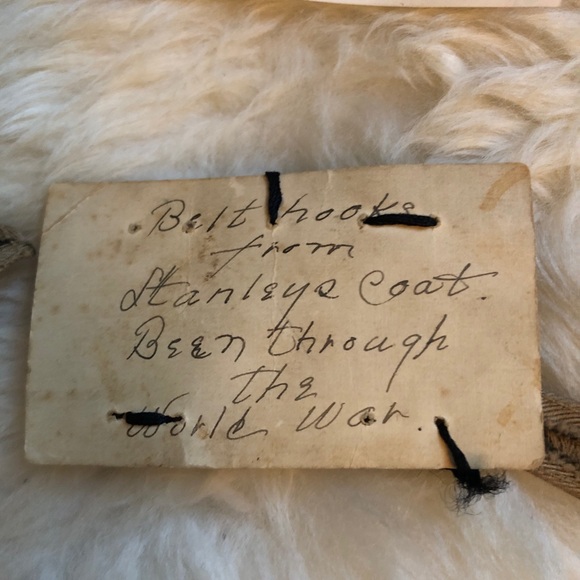 Belt hooks
from
Stanleys Coat.
Been through
the
World War.